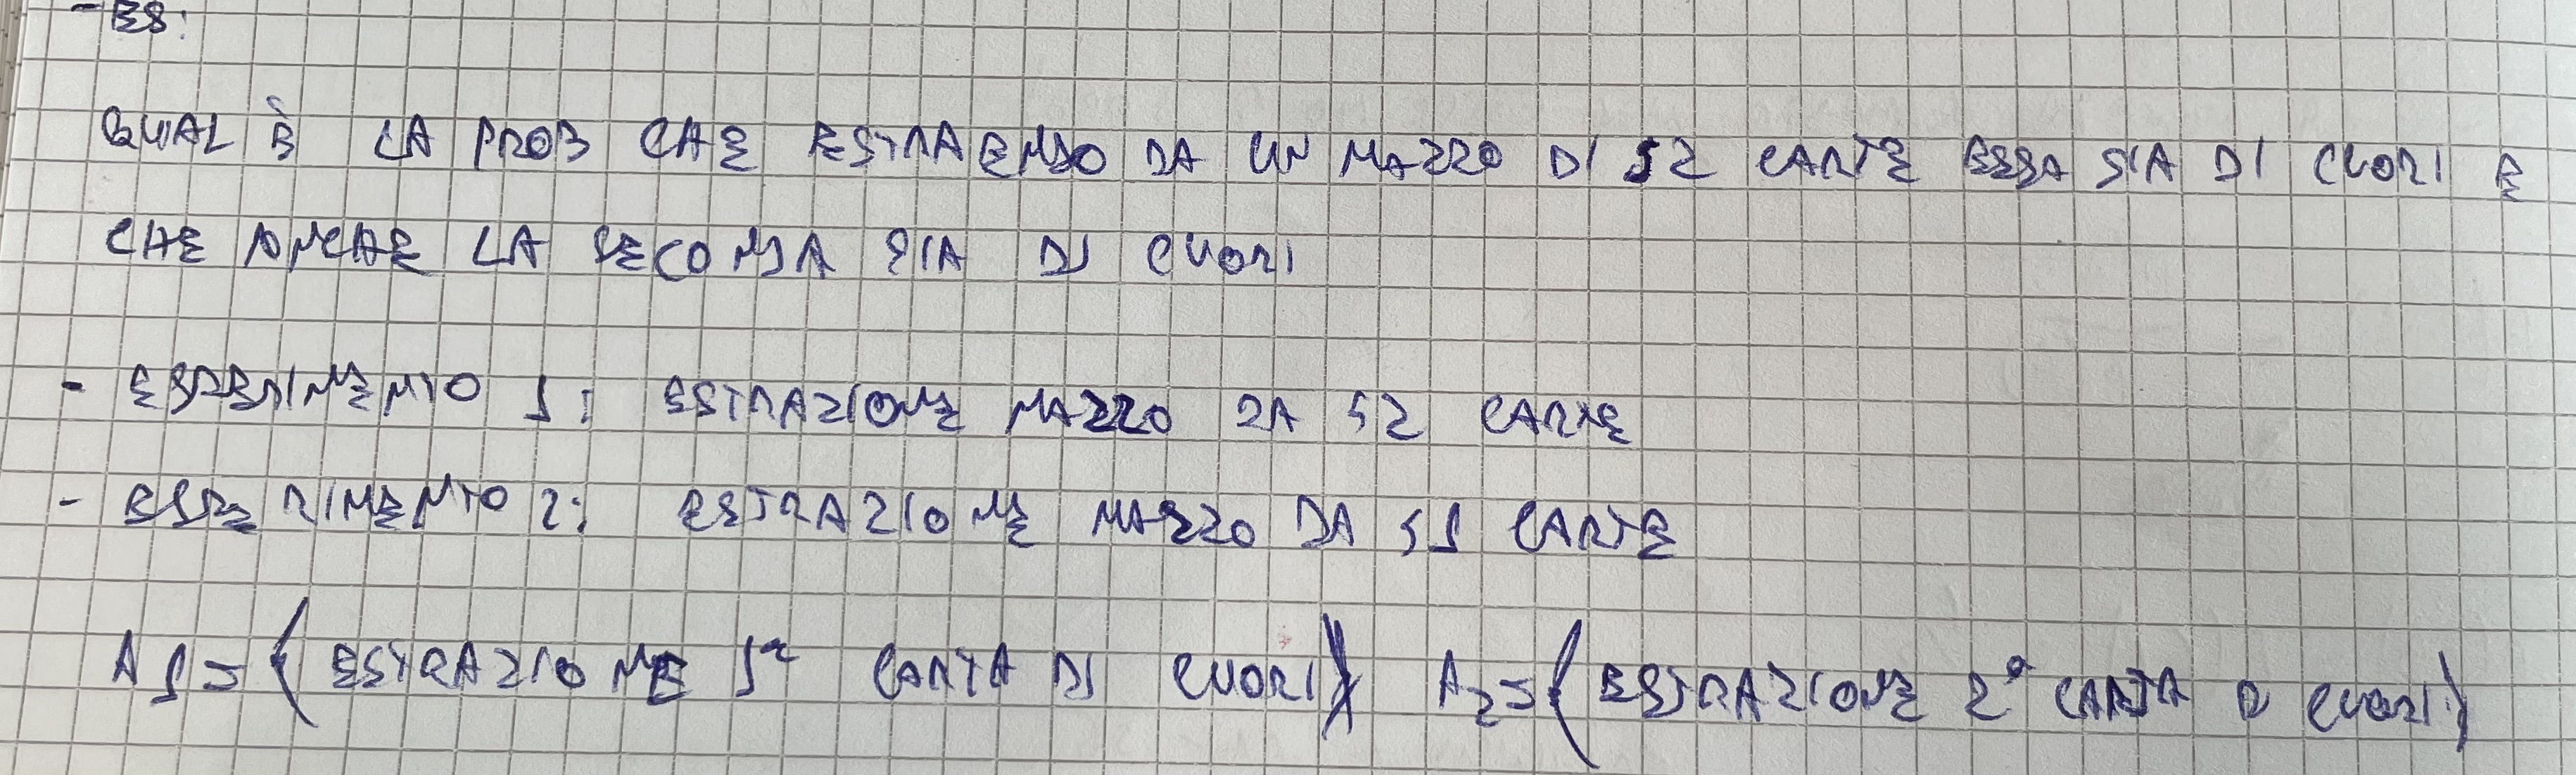 - ES:
QUAL È LA PROB CHE ESTRAENDO DA UN MAZZO DI 52 CARTE ESSA SIA DI CUORI E
CHE ANCHE LA SECONDA SIA DI CUORI
- ESPERIMENTO 1: ESTRAZIONE MAZZO DA 52 CARTE
- ESPERIMENTO 2: ESTRAZIONE MAZZO DA 51 CARTE
A1 = { ESTRAZIONE 1ª CARTA DI CUORI } A2 = { ESTRAZIONE 2ª CARTA D CUORI }